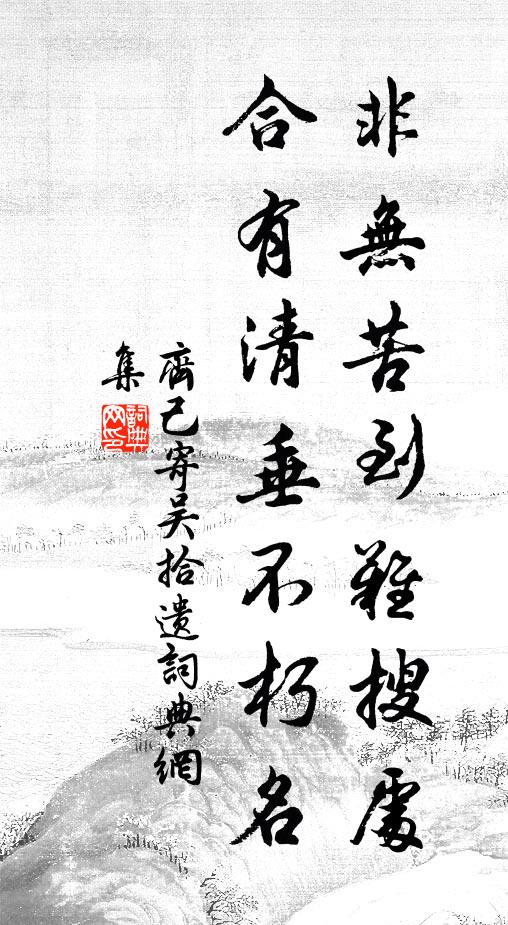 非無苦到難搜處
合有清垂不朽名
齊己寄吴拾遺詞典網
集
詞典
网印